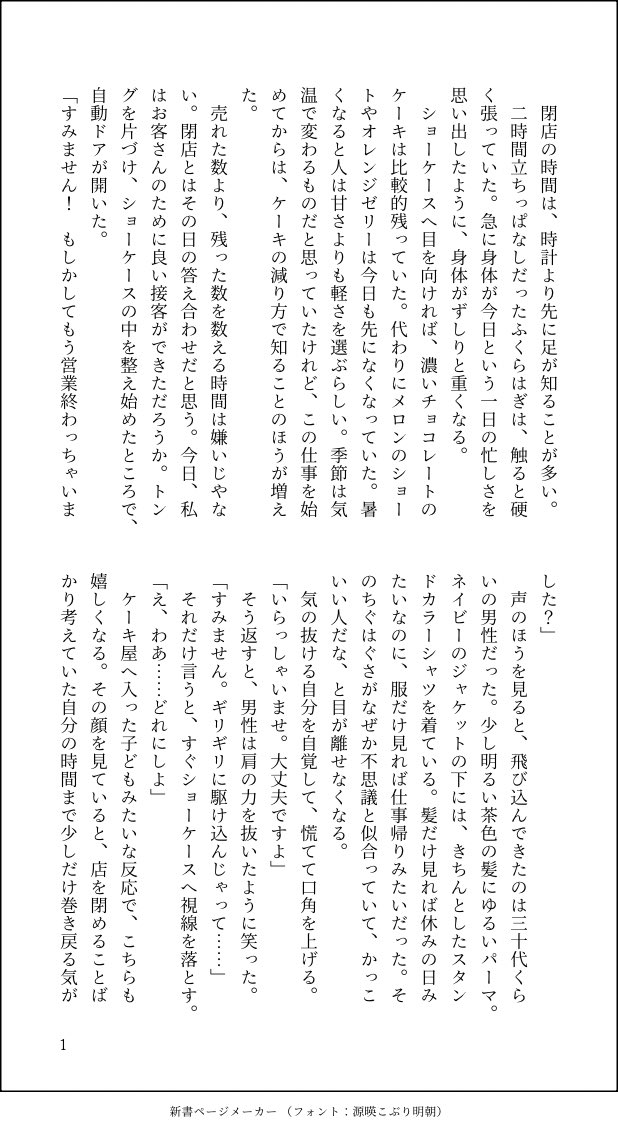 閉店の時間は、時計より先に足が知ることが多い。
　二時間立ちっぱなしだったふくらはぎは、触ると硬
く張っていた。急に身体が今日という一日の忙しさを
思い出したように、身体がずしりと重くなる。
　ショーケースへ目を向ければ、濃いチョコレートの
ケーキは比較的残っていた。代わりにメロンのショー
トやオレンジゼリーは今日も先になくなっていた。暑
くなると人は甘さよりも軽さを選ぶらしい。季節は気
温で変わるものだと思っていたけれど、この仕事を始
めてからは、ケーキの減り方で知ることのほうが増え
た。
　売れた数より、残った数を数える時間は嫌いじゃな
い。閉店とはその日の答え合わせだと思う。今日、私
はお客さんのために良い接客ができただろうか。トン
グを片づけ、ショーケースの中を整え始めたところで、
自動ドアが開いた。
「すみません！　もしかしてもう営業終わっちゃいま
した？」
　声のほうを見ると、飛び込んできたのは三十代くら
いの男性だった。少し明るい茶色の髪にゆるいパーマ。
ネイビーのジャケットの下には、きちんとしたスタン
ドカラーシャツを着ている。髪だけ見れば休みの日み
たいなのに、服だけ見れば仕事帰りみたいだった。そ
のちぐはぐさがなぜか不思議と似合っていて、かっこ
いい人だな、と目が離せなくなる。
　気の抜ける自分を自覚して、慌てて口角を上げる。
「いらっしゃいませ。大丈夫ですよ」
　そう返すと、男性は肩の力を抜いたように笑った。
「すみません。ギリギリに駆け込んじゃって……」
　それだけ言うと、すぐショーケースへ視線を落とす。
「え、わあ……どれにしよ」
　ケーキ屋へ入った子どもみたいな反応で、こちらも
嬉しくなる。その顔を見ていると、店を閉めることば
かり考えていた自分の時間まで少しだけ巻き戻る気が
1
新書ページメーカー（フォント：源暎こぶり明朝）